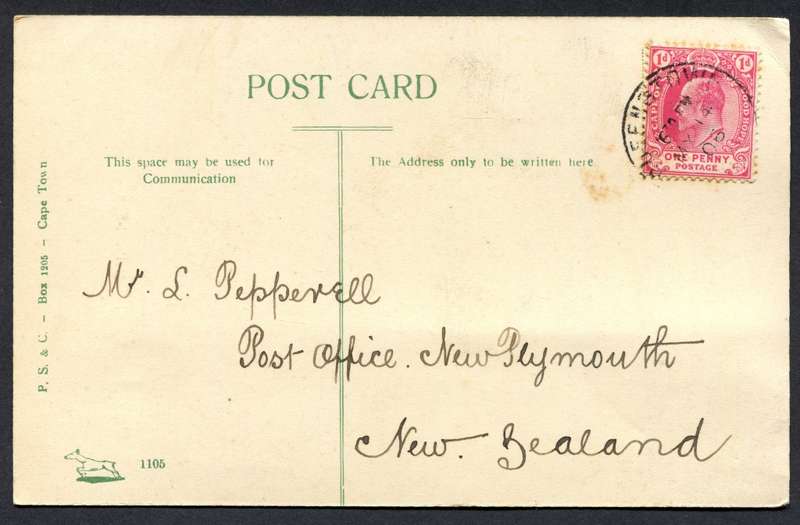 POST CARD
This space may be used for
Communication
The Address only to be written here.
P. S. & C. – Box 1205 – Cape Town
1d 1d
CAPE OF GOOD HOPE
ONE PENNY
POSTAGE
Mr. L. Pepperell
Post Office. New Plymouth
New. Zealand
1105